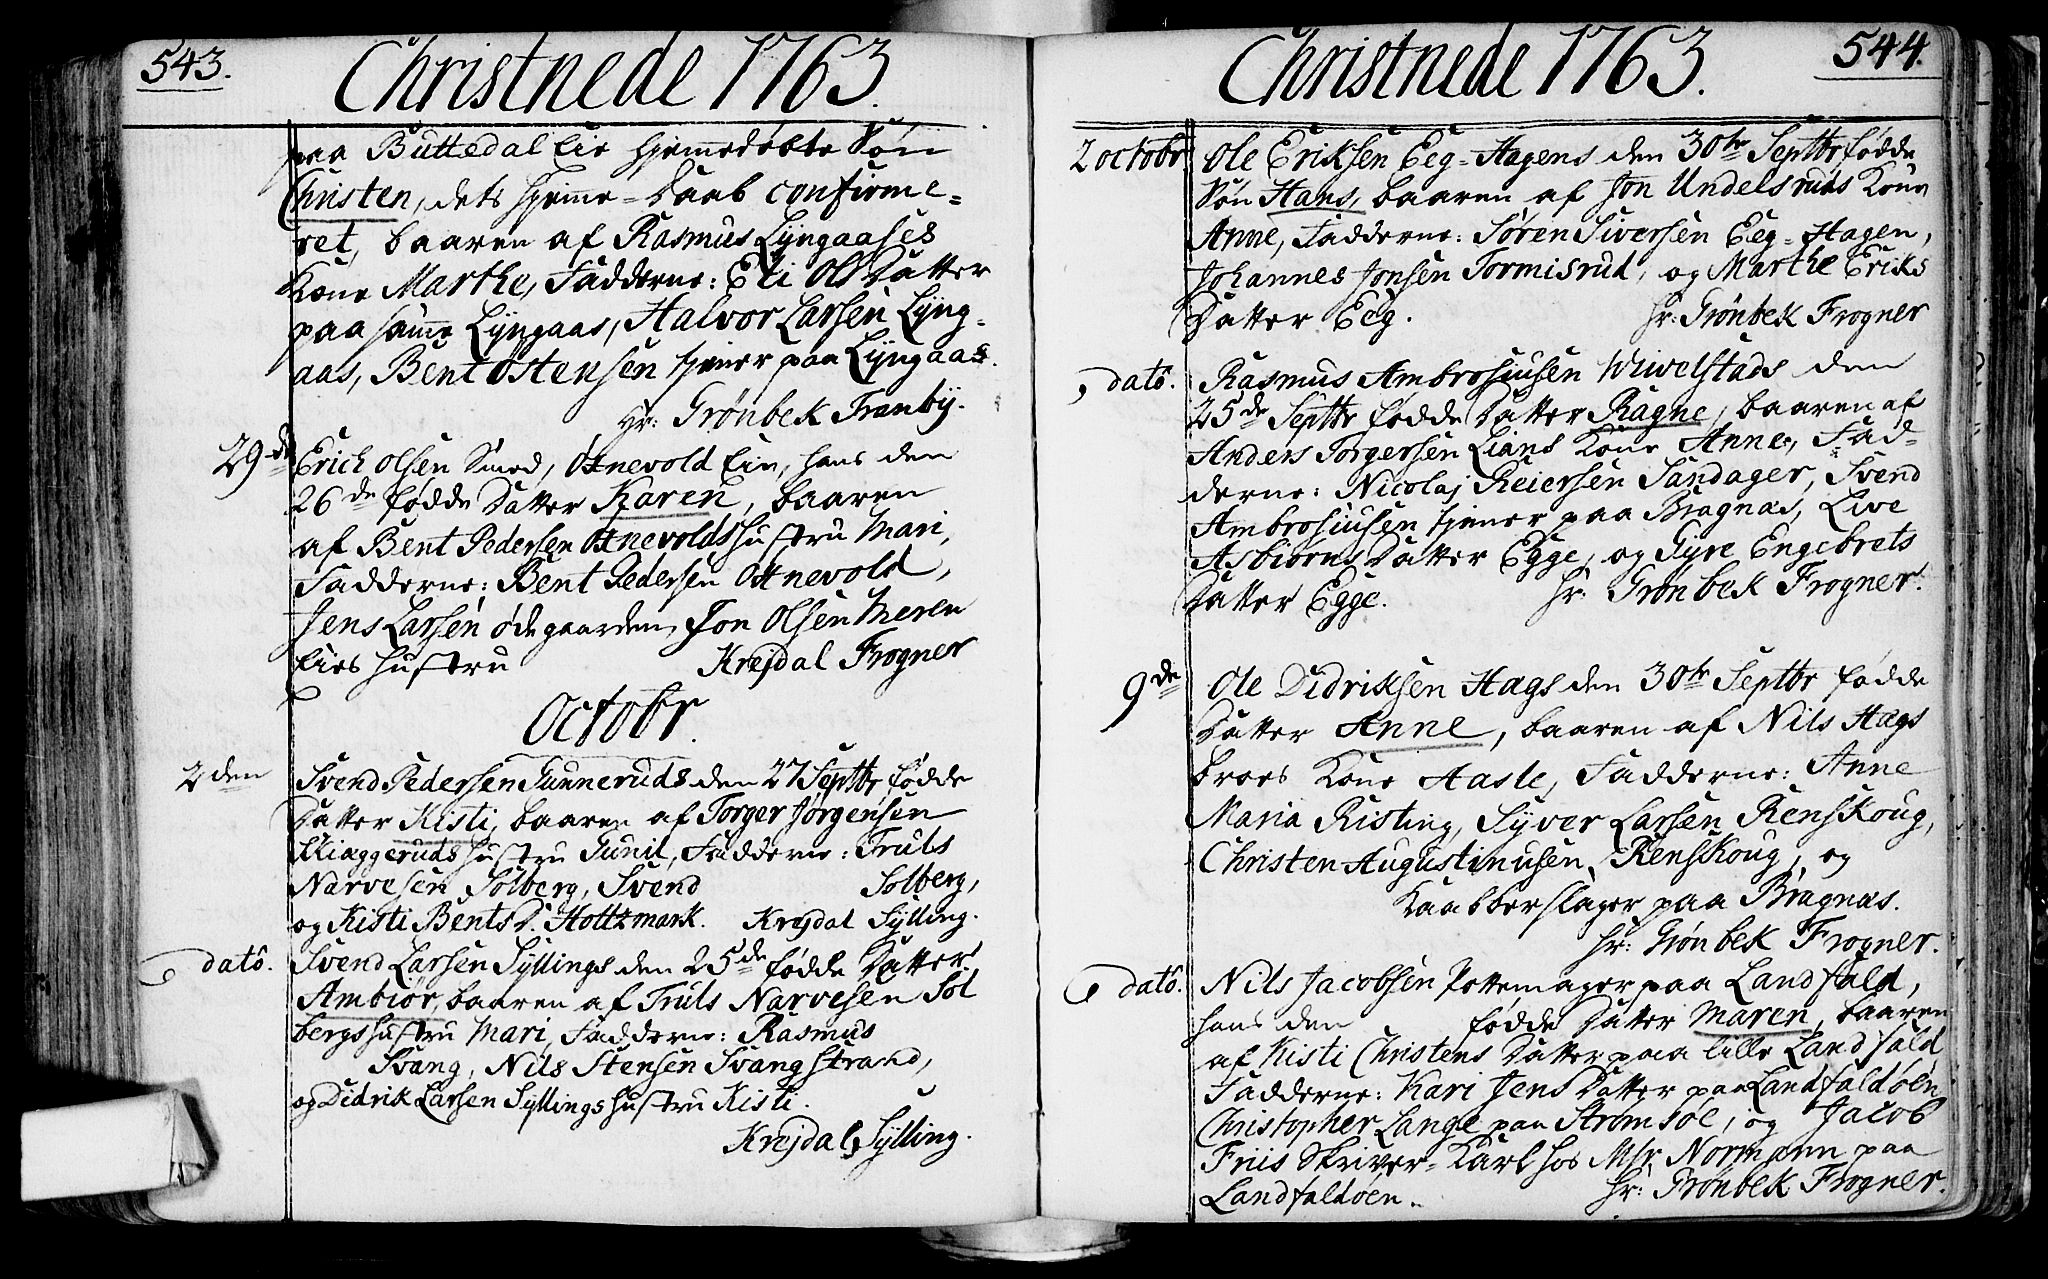 543.
Christnede 1763.
paa Buttedal Eie hjemmedøbte Søn
Christen, dets hjemme-Daab confirme=
ret, baaren af Rasmus Lyngaases
Kone Marthe, Fadderne: Eli Ols Datter
paa samme Lyngaas, Halvor Larsen Lyng-
aas, Bent Østensen tjener paa Lyngaas.
Hr: Grønbek Tranby.
29de
Erich Olsen Smed, Østnevold Eie, hans den
26de fødde Datter Karen, baaren
af Bent Pedersen Østnevolds Hustru Mari,
Fadderne: Bent Pedersen Østnevold,
Jens Larsen Ødegaarden, Jon Olsen Meren
Eies Hustru Krejdal Frogner
Octobr.
2den
Svend Pedersen Gunneruds den 27 Septbr fødde
Datter Kisti, baaren af Torger Jørgensen
Kiaggeruds Hustru Gunil, Fadderne: Truls
Narvesen Solberg, Svend Solberg,
og Kisti Bents D. Holtzmark. Krejdal Sylling.
dato.
Svend Larsen Syllings den 25de fødde Datter
Ambiør, baaren af Truls Narvesen Sol
bergs Hustru Mari, Fadderne: Rasmus
Svang, Nils Stensen Svangstrand,
og Didrik Larsen Syllings Hustru Kisti.
Krejdal, Sylling.
544.
Christnede 1763.
2 octobr
Ole Eriksen Eeg-Hagens den 30te Septbr fødde
Søn Hans, baaren af Jon Undelsruds Kone
Anne, Fadderne: Søren Siversen Eeg-Hagen,
Johannes Jonsen Tormisrud, og Marthe Eriks
Datter Eeg. Hr: Grønbek Frogner
dato.
Rasmus Ambrosiusen Wivelstads den
25de Septbr fødde Datter Ragne, baaren af
Anders Torgersen Lians Kone Anne, Fad-
derne: Nicolaj Reiersen Sandager, Svend
Ambrosiusen tjener paa Bragnas, Live
Asbiørns Datter Egge, og Gyre Engebrets
Datter Egge. Hr: Grønbek Frogner.
9de
Ole Didriksen Hags den 30te Septbr fødde
Datter Anne, baaren af Nils Hags
broes Kone Aasle, Fadderne: Anne
Maria Risting, Syver Larsen Renskoug,
Christen Augustinusen Renskoug, og
Kaabberslager paa Bragnas.
Hr: Grønbek Frogner.
dato.
Nils Jacobsen Pottemager paa Landfald,
hans den fødde Datter Maren, baaren
af Kisti Christens Datter paa lille Landfald
Fadderne: Kari Jens Datter paa Landfaldøen
Christopher Lange paa Strømsoe, og Jacob
Friis Skriver-Karl hos Msr Normann paa
Landfaldøen. Hr: Grønbek Frogner.